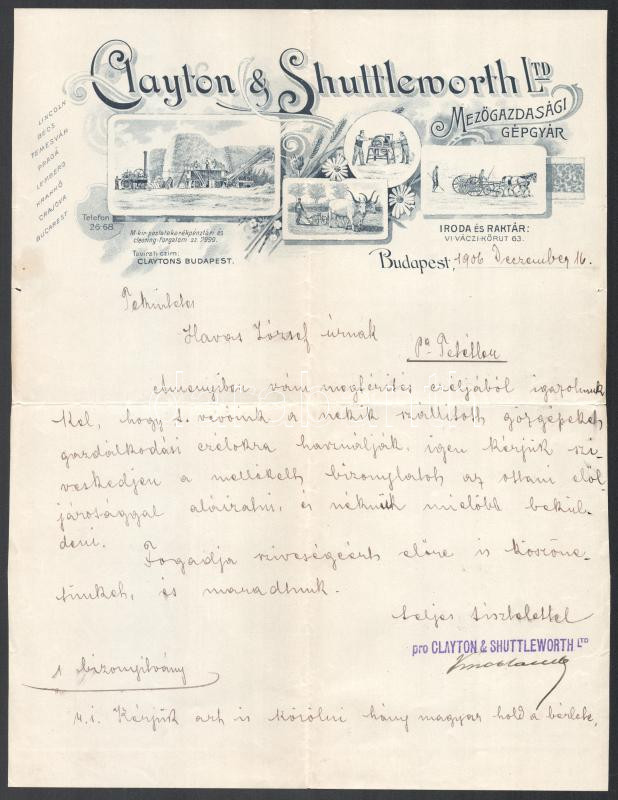 Clayton & Shuttleworth LTD
MEZŐGAZDASÁGI
GÉPGYÁR
LINCOLN
BÉCS
TEMESVÁR
PRÁGA
LEMBERG
KRAKKÓ
CRAJOVA
BUCAREST
Telefon
26-68.
M. kir. postatakarékpénztári és
clearing-forgalom sz. 2999.
Távirati czim:
CLAYTONS BUDAPEST.
IRODA ÉS RAKTÁR:
VI VÁCZI-KÖRUT 63.
Budapest, 1906 Deczember 16.
Tekintetes
Havas József úrnak
Pa Tetétlen
Amennyiben vám megtérités czéljából igazolnunk
kel, hogy t. vevőink a nékik szállitott gőzgépeket
gazdálkodási czélokra használják, igen kérjük szi-
veskedjen a mellékelt bizonylatot az ottani elöl-
járosággal aláiratni, és nékünk mielőbb bekül-
deni.
Fogadja szivességéért előre is köszöne-
tünket, és maradtunk.
teljes tisztelettel
pro CLAYTON & SHUTTLEWORTH LTD
1 bizonyitvány
u. i. Kérjük azt is közölni hány magyar hold a bérlete.